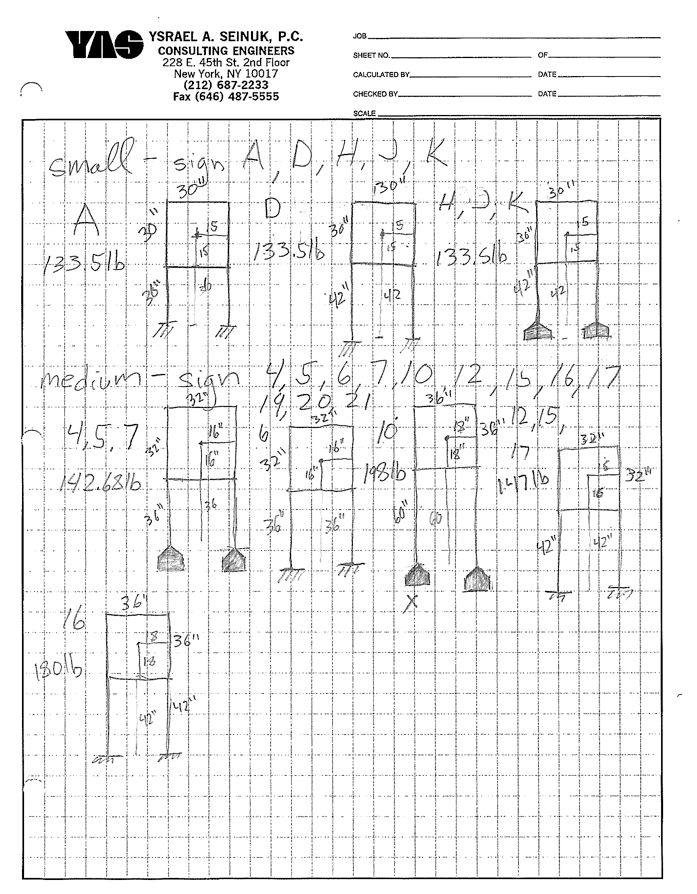 YAS
YSRAEL A. SEINUK, P.C.
CONSULTING ENGINEERS
228 E. 45th St. 2nd Floor
New York, NY 10017
(212) 687-2233
Fax (646) 487-5555
JOB
SHEET NO. OF
CALCULATED BY DATE
CHECKED BY DATE
SCALE
small - sign A, D, H, J, K
A
133.5lb
30"
30"
15
15
36"
36
D
133.5lb
30"
30"
15
15
42"
42
H, J, K
133.5lb
30"
30"
15
15
42"
42
medium - sign 4, 5, 6, 7, 10, 12, 15, 16, 17
19, 20, 21
4, 5, 7
142.68lb
32"
32"
16"
16"
36"
36
6
32"
32"
16"
16"
36"
36"
10
198lb
36"
36"
18"
18"
60"
60
X
12, 15,
17
147lb
32"
32"
16
16
42"
42"
16
180lb
36"
36"
18
18
42"
42"